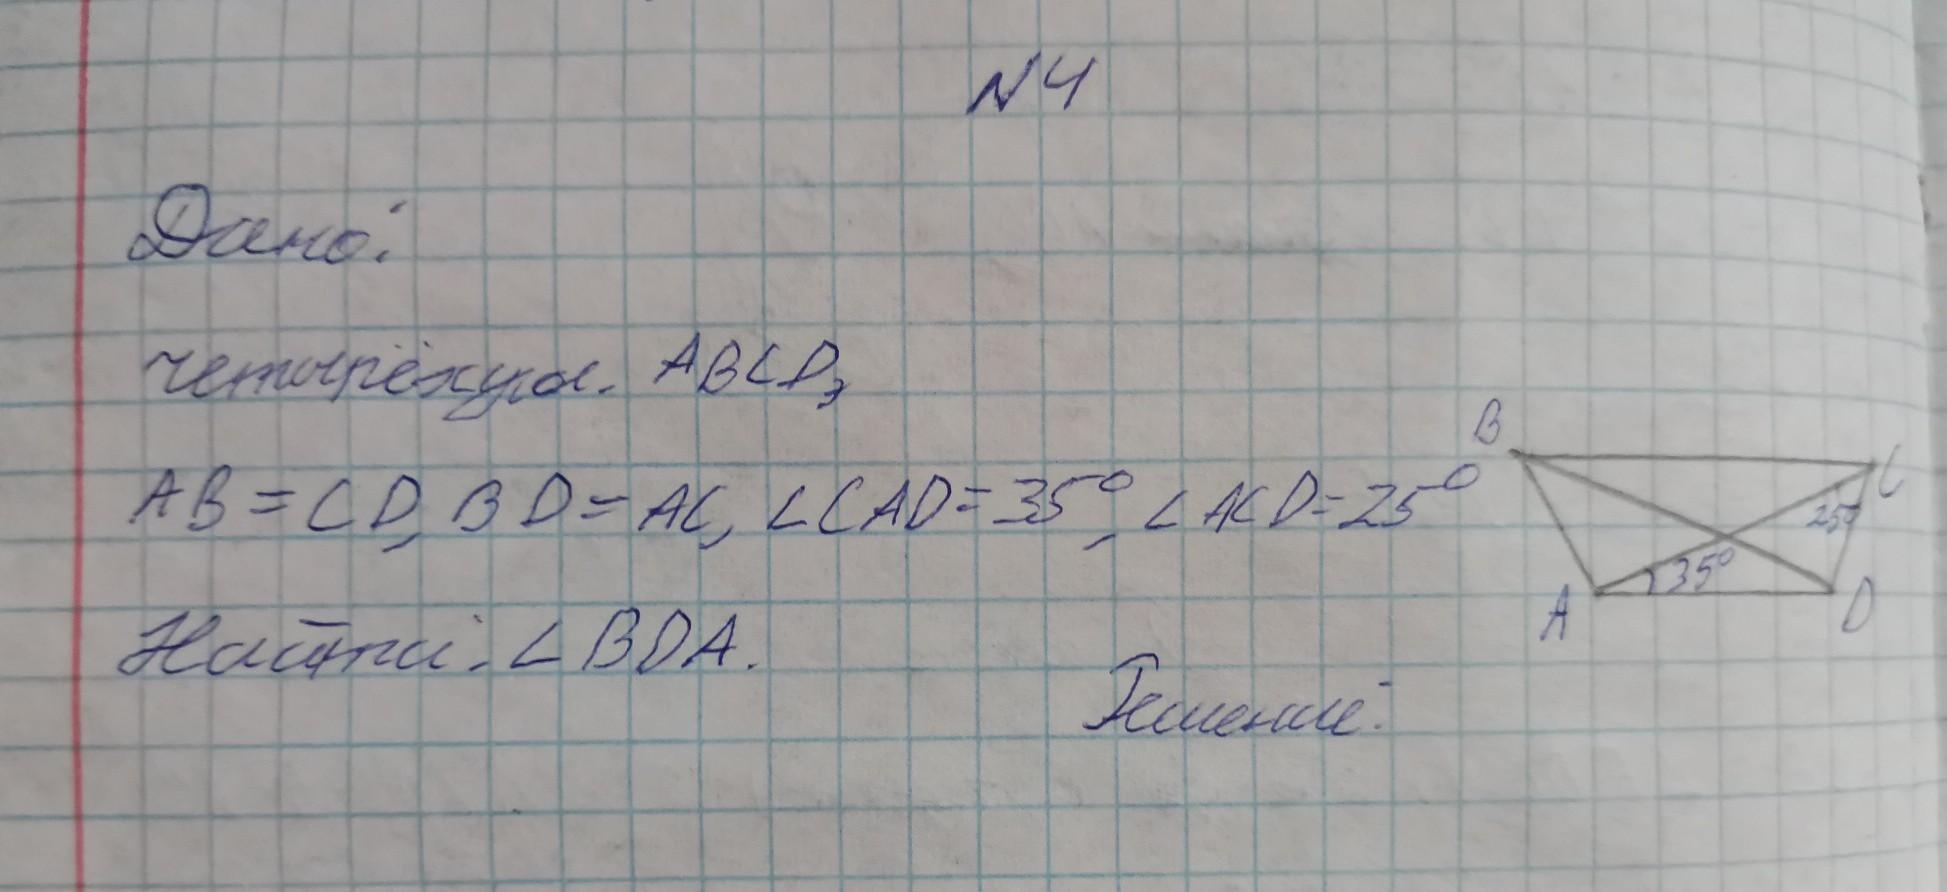 N4
Дано:
четырёхуг. ABCD,
AB = CD, BD = AC, ∠CAD = 35°, ∠ACD = 25°
Найти: ∠BDA.
Решение:
B
C
25°
35°
A
D